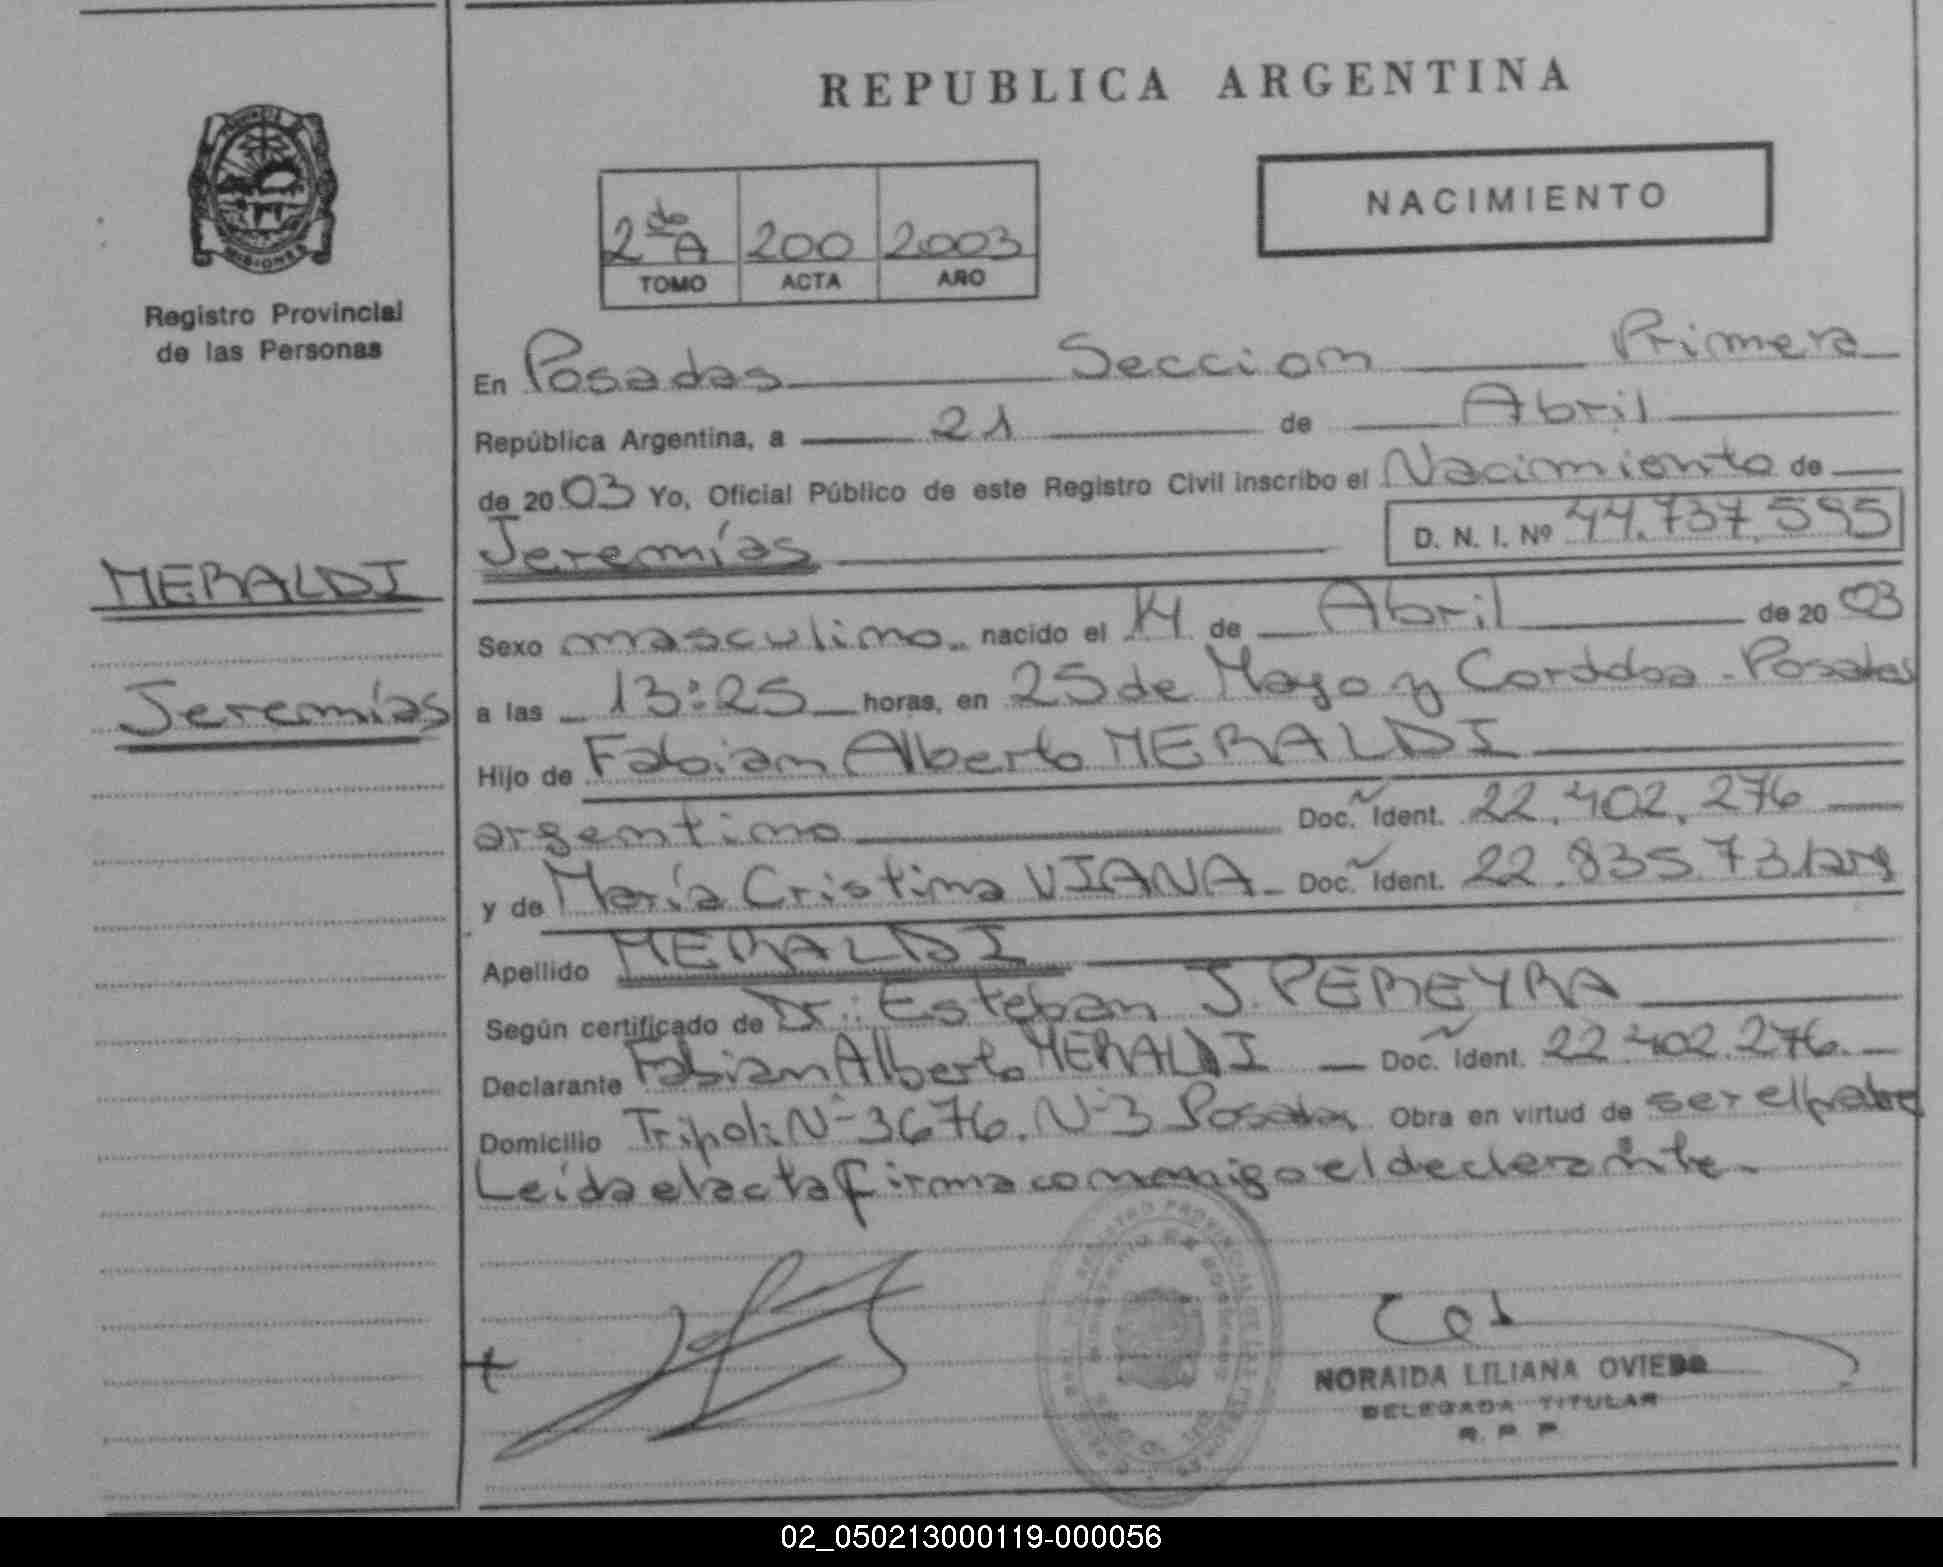 REPUBLICA ARGENTINA
NACIMIENTO
2do A 200 2003
TOMO ACTA AÑO
Registro Provincial
de las Personas
En Posadas Seccion Primera
República Argentina, a 21 de Abril
de 2003 Yo, Oficial Público de este Registro Civil inscribo el Nacimiento de
Jeremías D. N. I. Nº 44.737.595
MERALDI
Jeremías
Sexo masculino nacido el 14 de Abril de 2003
a las 13:25 horas, en 25 de Mayo y Cordoba - Posadas
Hijo de Fabian Alberto MERALDI
argentino Doc. Ident. 22.402.276
y de María Cristina VIANA - Doc. Ident. 22.835.731 arg
Apellido MERALDI
Según certificado de Dr.: Esteban J. PEREYRA
Declarante Fabian Alberto MERALDI Doc. Ident. 22.402.276
Domicilio Tripoli Nº 3676. Nº 3 Posadas Obra en virtud de ser el padre
Leída el acta firma conmigo el declarante
NORAIDA LILIANA OVIEDO
DELEGADA TITULAR
R. P. P.
02_050213000119-000056